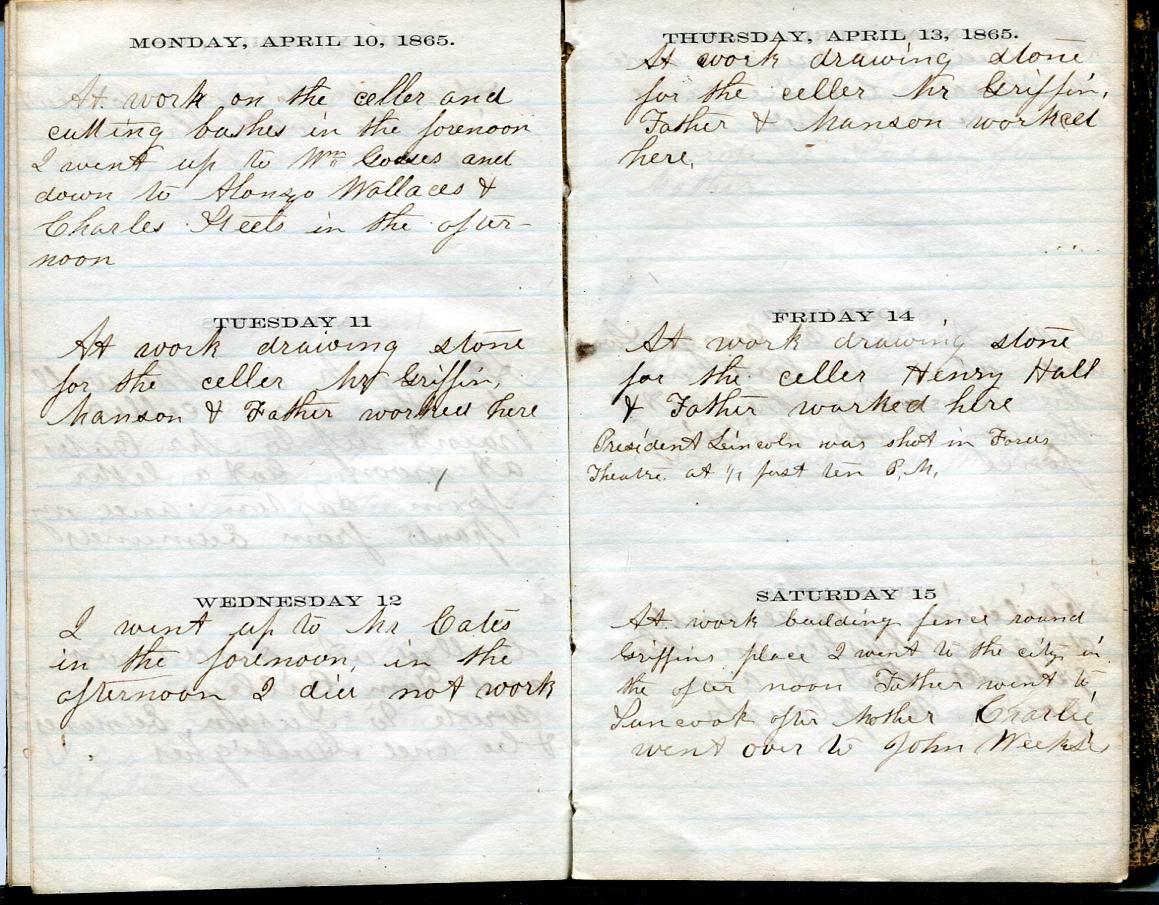 MONDAY, APRIL 10, 1865.
At work on the celler and
cutting bushes in the forenoon
I went up to Wm and
down to Alonzo Wallaces &
Charles Steels in the after-
noon
TUESDAY 11
At work drawing stone
for the celler Mr Griffin,
Manson & Father worked here
WEDNESDAY 12
I went up to Mr Cates
in the forenoon, in the
afternoon I did not work
THURSDAY, APRIL 13, 1865.
At work drawing stone
for the celler Mr Griffin,
Father & Manson worked
here,
FRIDAY 14
At work drawing stone
for the celler Henry Hall
& Father worked here
President Lincoln was shot in
Theatre. at past ten P.M,
SATURDAY 15
At work building fence round
Griffins place I went to the city in
the after noon Father went to
Suncook after Mother Charlie
went over to John Weeks's